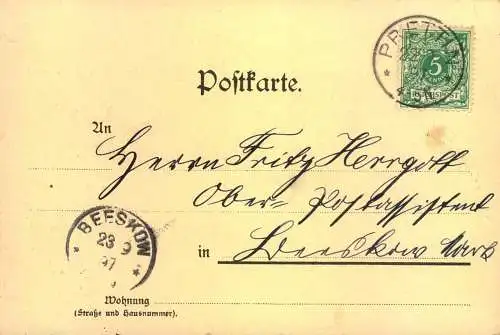 PRETTIN
5
Postkarte.
An
Herrn Fritz Herrgott
Ober-Postassistent
in Beeskow Mark
BEESKOW
23 9
97
Wohnung
(Straße und Hausnummer).